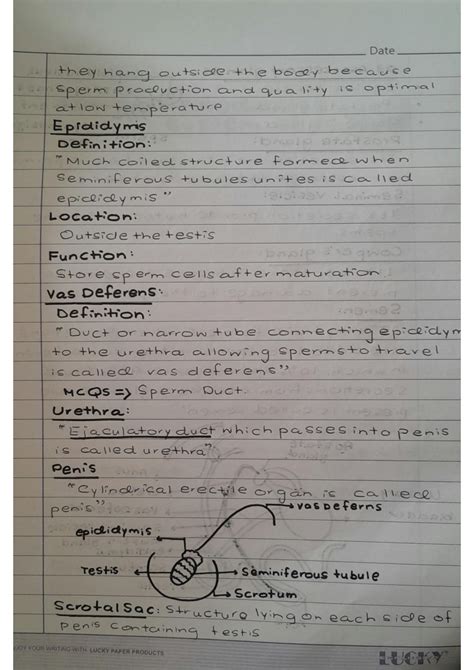 Date
they hang outside the body because
sperm production and quality is optimal
at low temperature
Epididymis
Definition:
"Much coiled structure formed when
seminiferous tubules unites is called
epididymis"
Location:
Outside the testis
Function:
Store sperm cells after maturation.
Vas Deferens:
Definition:
"Duct or narrow tube connecting epididym
to the urethra allowing sperms to travel
is called vas deferens"
MCQS => Sperm Duct.
Urethra:
"Ejaculatory duct which passes into penis
is called urethra"
Penis
"Cylindrical erectile organ is called
penis"
vas Deferns
epididymis
Testis
Seminiferous tubule
Scrotum
Scrotal Sac: Structure lying on each side of
penis containing testis
JOY YOUR WRITING WITH LUCKY PAPER PRODUCTS
LUCKY